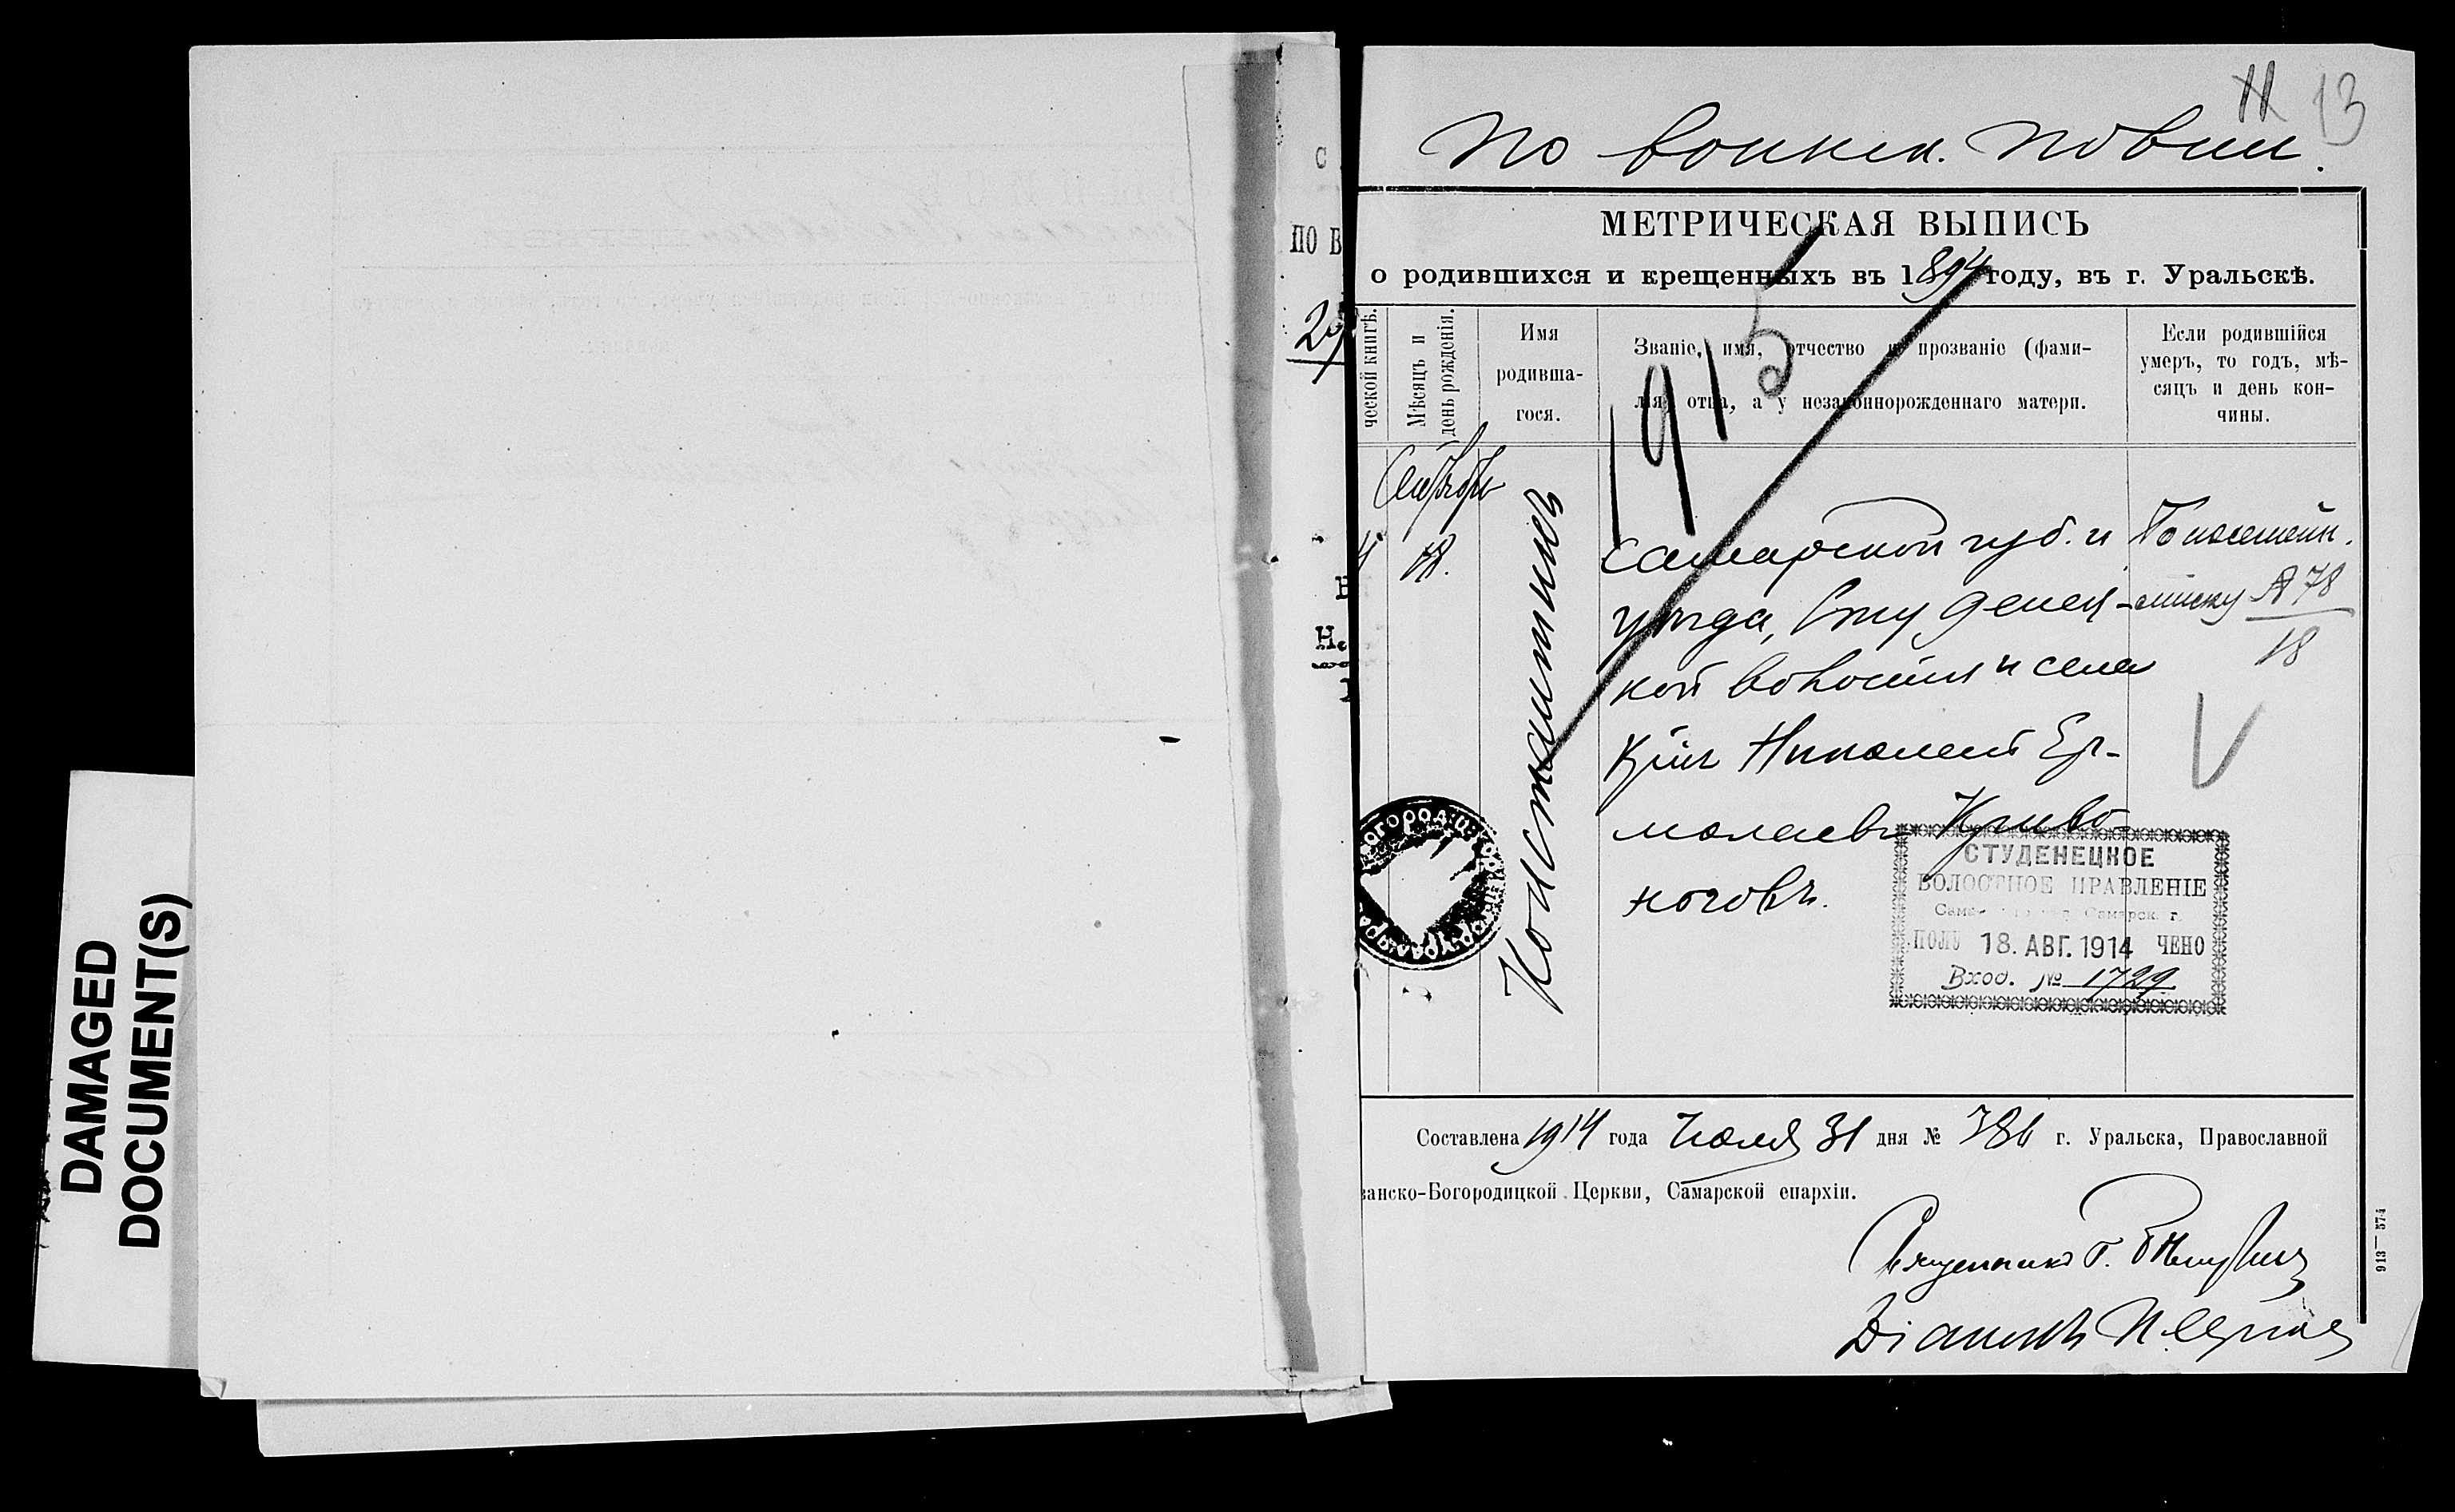 DAMAGED
DOCUMENT(S)
С
ПО В
Но
11 13
По воинск. повин.
МЕТРИЧЕСКАЯ ВЫПИСЬ
о родившихся и крещенныхъ въ 1894 году, въ г. Уральскѣ.
1915
ческой книгѣ.
Мѣсяцъ и
день рожденія.
Имя
родивша-
гося.
Званіе, имя, отчество и прозваніе (фами-
лія) отца, а у незаконнорожденнаго матери.
Если родившійся
умеръ, то годъ, мѣ-
сяцъ и день кон-
чины.
18.
Константинъ
Самарской губ. и
уѣзда, Студенец-
кой волости и села
Кр-нъ Николай Ер-
молаевъ Криво-
ноговъ.
По посемейн.
списку № 78
18
V
СТУДЕНЕЦКОЕ
ВОЛОСТНОЕ ПРАВЛЕНІЕ
Самарск. г.
ПОЛУ 18. АВГ. 1914 ЧЕНО
Вход. № 1729
Составлена 1914 года Іюля 31 дня № 386 г. Уральска, Православной
занско-Богородицкой Церкви, Самарской епархіи.
Священникъ
Діаконъ
913—574